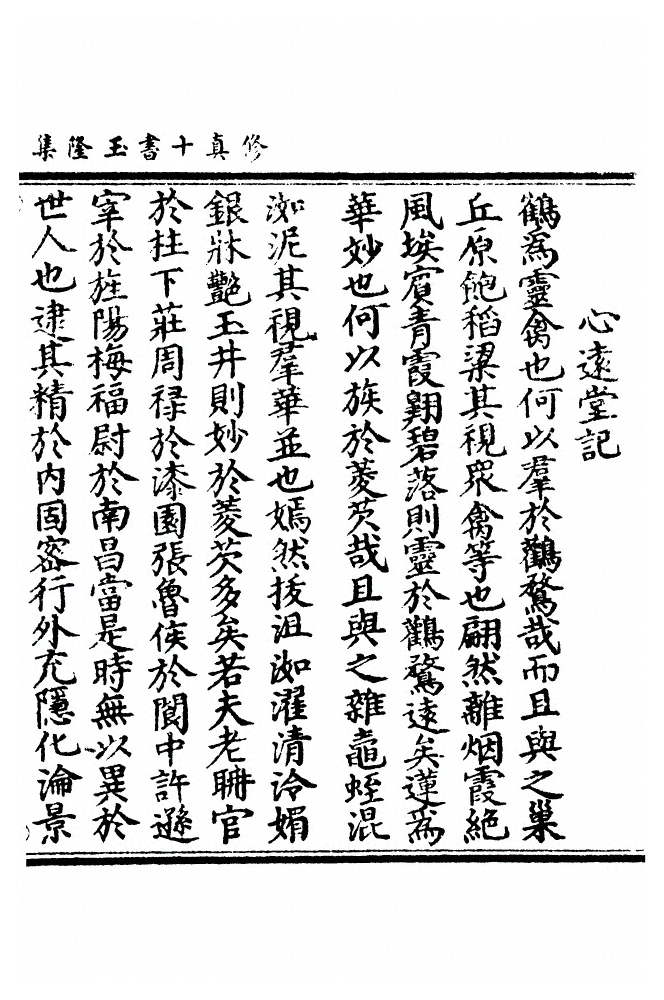 修真十書玉隆集
心遠堂記
鶴爲靈禽也何以羣於鸛鶩哉而且與之巢
丘原飽稻梁其視眾禽等也翩然離烟霞絕
風埃賓青霞翺碧落則靈於鸛鶩遠矣蓮爲
華妙也何以族於菱芡哉且與之雜黿蛭混
洳泥其視羣華並也嫣然拔沮洳濯清泠媚
銀牀艷玉井則妙於菱芡多矣若夫老聃官
於柱下莊周祿於漆園張魯侯於閬中許遜
宰於旌陽梅福尉於南昌當是時無以異於
世人也逮其精於內固密行外充隱化淪景